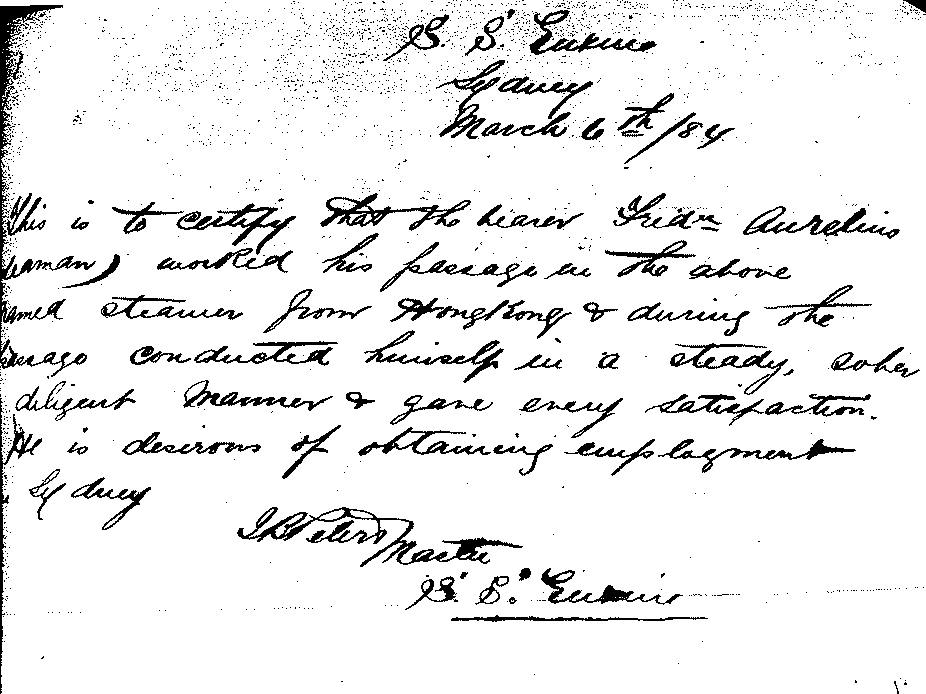 S. S. Euxine
Sydney
March 6th /84
This is to certify that the bearer Fredk Aurelius
seaman) worked his passage in the above
named steamer from HongKong & during the
passage conducted himself in a steady, sober
diligent manner & gave every satisfaction.
He is desirous of obtaining employment
Sydney
Peters Master
S. S. Euxine